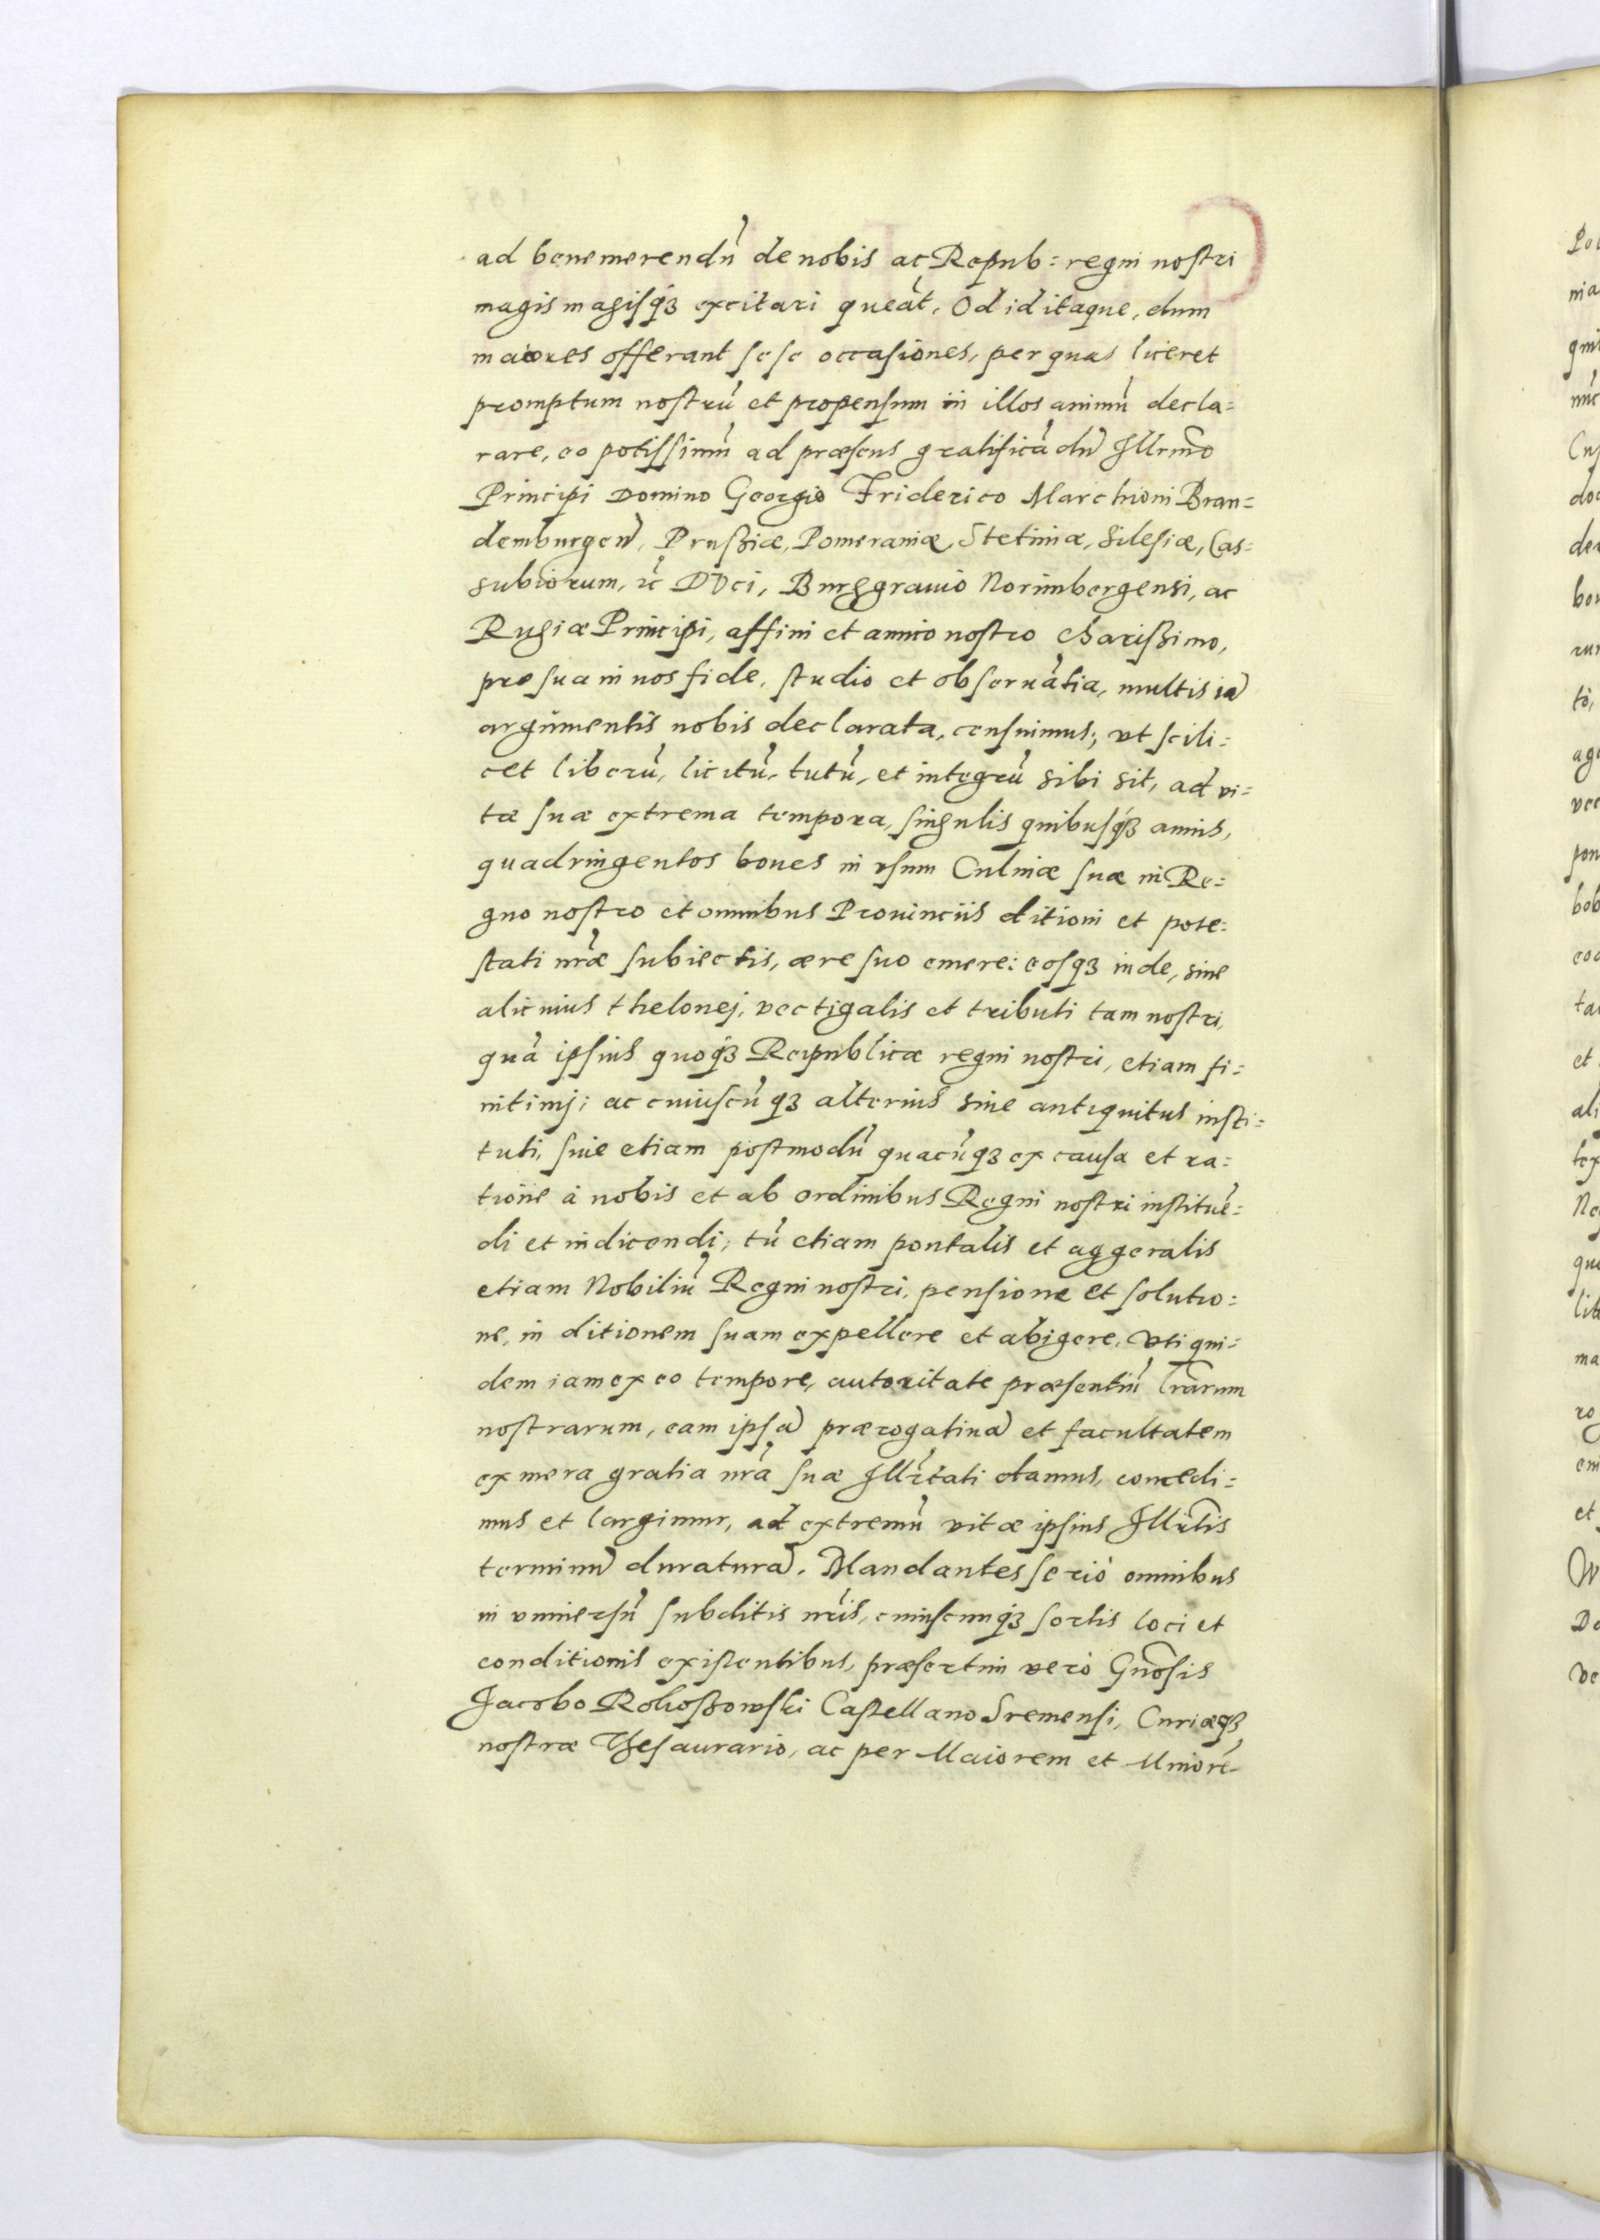 ad benemerendū de nobis ac Repub= regni nostri
magis magisq́ꝫ excitari queāt. Od id itaque, dum
maiores offerant sese occasiones, per quas liceret
promptum nostrū et propensum in illos animū decla=
rare, eo potissimū ad præsens gratificādū Illrmo
Principi Domino Georgio Friderico Marchioni Bran=
demburgen̄, Prussiæ, Pomeraniæ, Stetiniæ, Silesiæ, Cas=
subiorum, ꝛc̄ DVci, Burggrauio Norimbergensi, ac
Rugiæ Principi, affini et amico nostro charissimo,
pre sua in nos fide, studio et obseruātia, multis iā
argumentis nobis declarata, censuimus; vt scili=
cet liberū, licitū, tutū, et integrū sibi sit, ad vi=
tæ suæ extrema tempora, singulis quibusq́ꝫ annis,
quadringentos boues in vsum Culinæ suæ in Re=
gno nostro et omnibus Prouinciis ditioni et pote=
stati nr̄æ subiectis, ære suo emere: eosqꝫ inde, sine
alicuius thelonej, vectigalis et tributi tam nostri,
quā ipsius quoq́ꝫ Reipublicæ regni nostri, etiam fi=
nitimj; ac cuiuscūqꝫ alterius siue antiquitus insti=
tuti, siue etiam postmodū quacūqꝫ ex causa et ra=
tione à nobis et ab ordinibus Regni nostri instituē=
di et indicendi; tū etiam pontalis et aggeralis
etiam Nobiliū Regni nostri, pensione et solutio=
ne, in ditionem suam expellere et abigere. Vti qui=
dem iam ex eo tempore, autoritate præsentiū lr̄arum
nostrarum, eam ipsā prærogatiuā et facultatem
ex mera gratia nr̄a suæ Illr̄tati damus, concedi=
mus et largimur, ad extremū vitæ ipsius Illr̄tis
terminū duraturā. Mandantes seriò omnibus
in vniuersū subditis nr̄is, cuiuscunq́ꝫ sortis loci et
conditionis existentibus, præsertim verò Gn̄osis
Jacobo Rokossowski Castellano Sremensi, Curiæqꝫ
nostræ Thesaurario, ac per Maiorem et Minorē